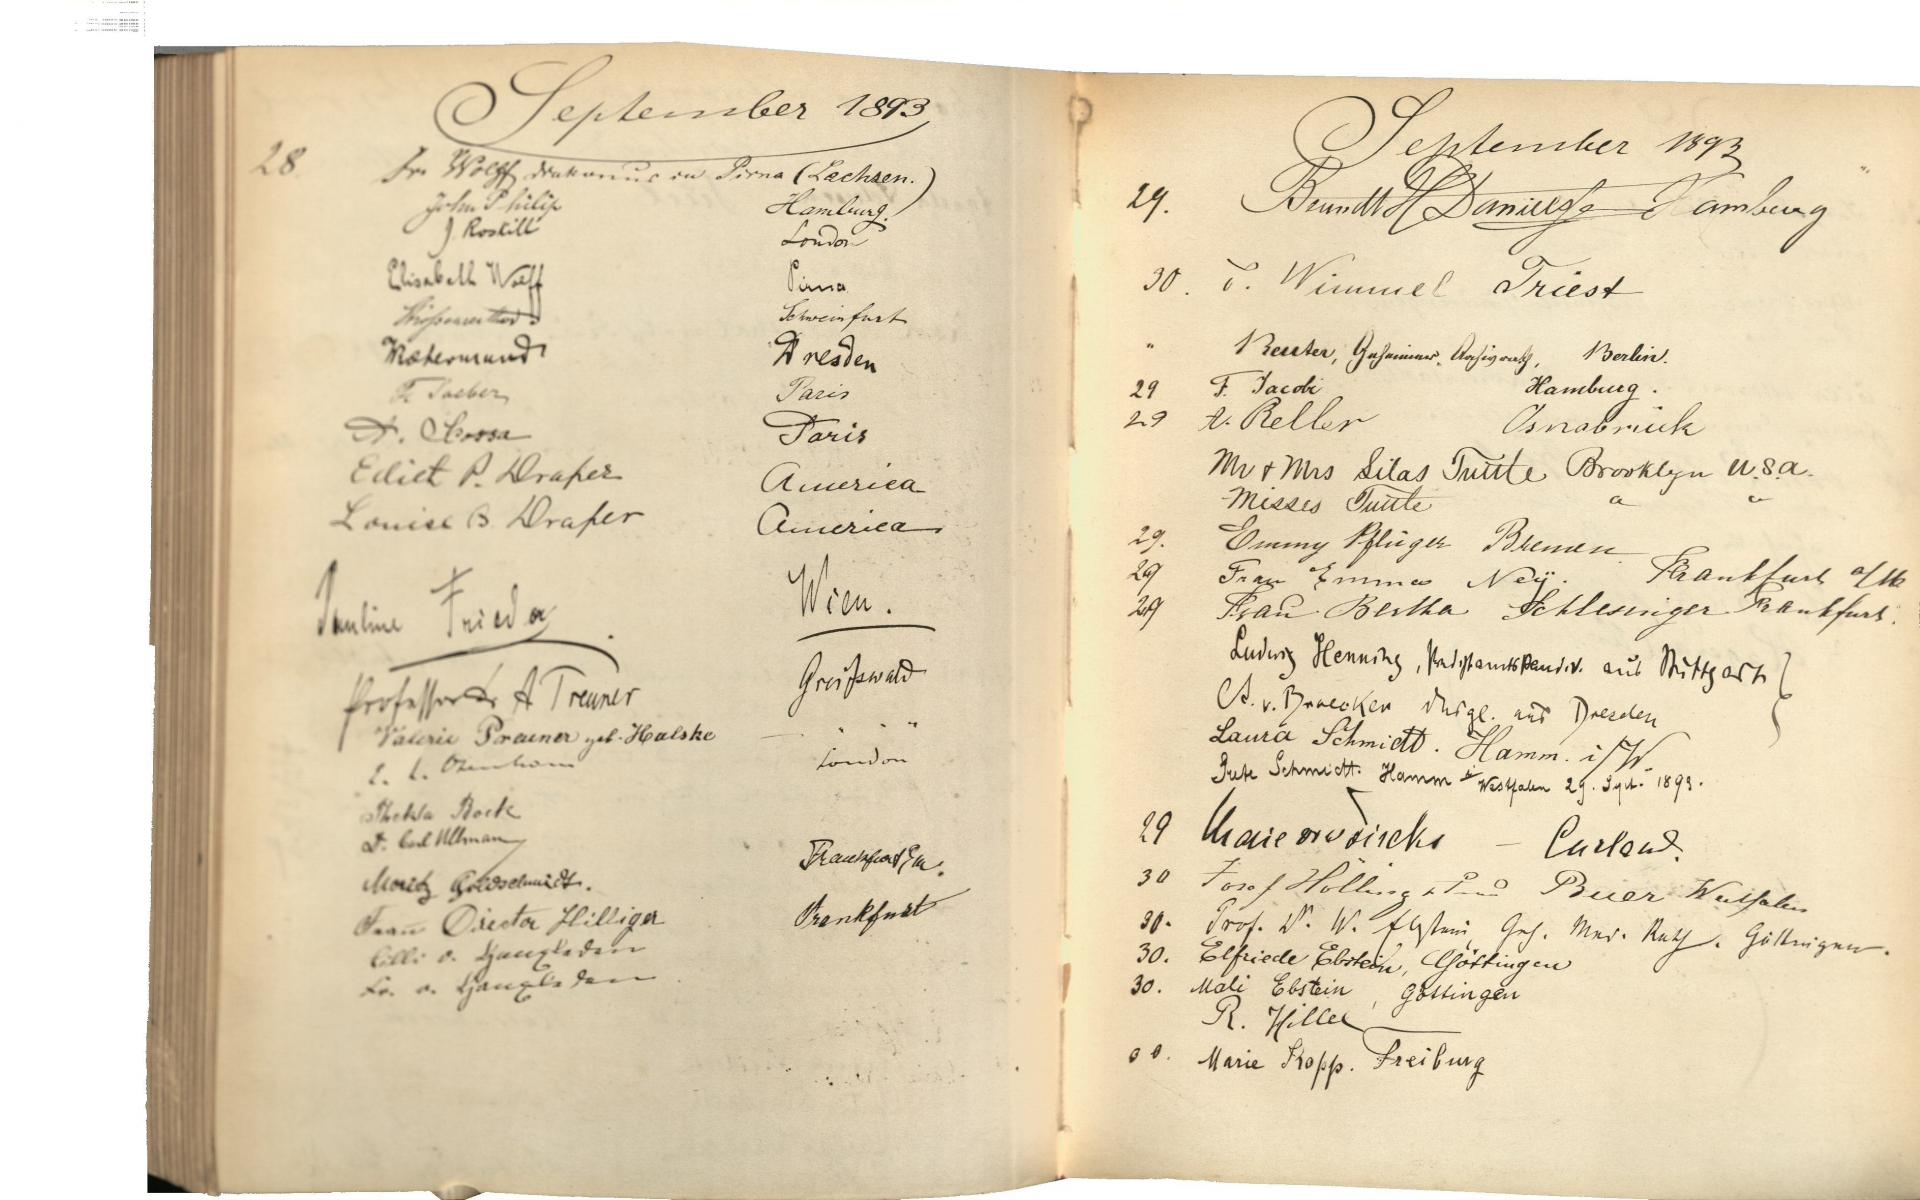 September 1893
28 Fr. Wolff Diakonus in Pirna (Sachsen.)
John Philip Hamburg.
J. Roskill London
Elisabeth Wolff Pirna.
Schweinfurt
Dresden
Paris
Paris
Edict P. Draper America
Louise B. Draper America
Pauline Wien.
Professor Dr A Preuner Greifswald
Valerie Preuner geb. Halske — " "
London
Thekla Bock
Dr. Carl Ullmann
Moritz Goldschmidt. Frankfurt a/m.
Frau Director Hilliger Frankfurt
September 1893
29. Hamburg
30. Wimmel Triest
" Reuter, Geheimer Archivrath, Berlin.
29 F. Jacobi Hamburg.
29 A. Reller Osnabrück
Mr & Mrs Silas Tuttle Brooklyn U.S.A.
Misses Tuttle " "
29. Emmy Pflüger Bremen
29 Frau Emma Ney. Frankfurt a/M
29 Frau Bertha Schlesinger Frankfurt.
Ludwig Henning, Predigtamtskandid. aus Stuttgart }
A. v. Broecker desgl. aus Dresden
Laura Schmidt. Hamm. i/W
Schmidt. Hamm i Westfalen 29. Sept. 1893.
29 — Curland.
30 Josef Hölling Buer Westfalen
30. Prof. Dr. W. Ebstein, Geh. Med. Rath. Göttingen.
30. Elfriede Ebstein, Göttingen
30. Mali Ebstein, Göttingen
R. Hiller
Marie Kopp. Freiburg